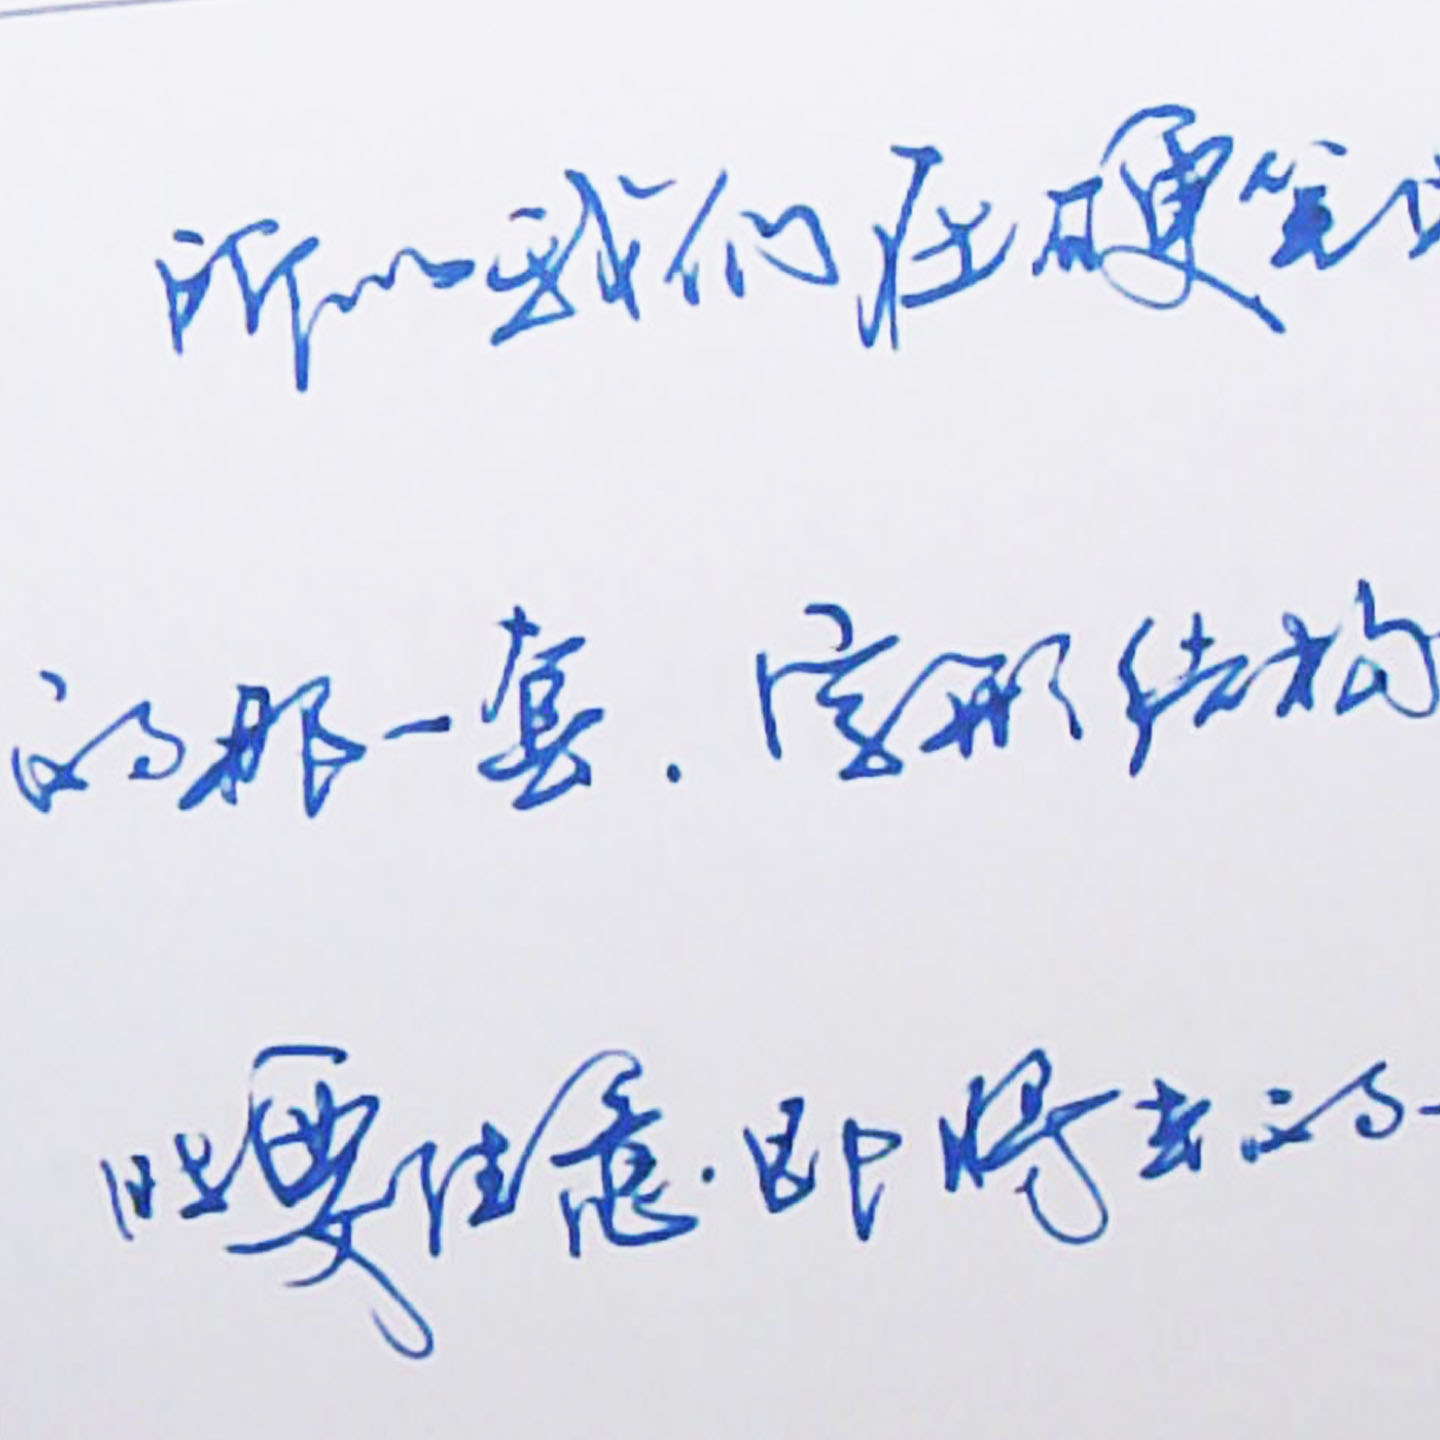 所以我们在硬笔
的那一套.字形结构
时要注意.即将去的一